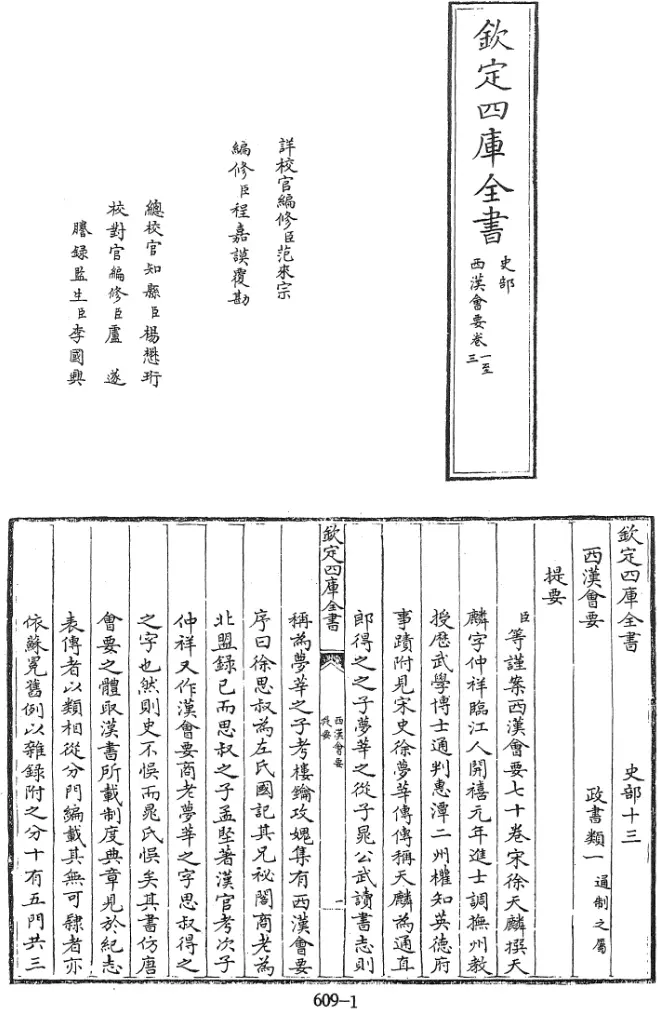 欽定四庫全書
史部
西漢會要卷一至三
詳校官編修臣范來宗
編修臣程嘉謨覆勘
總校官知縣臣楊懋珩
校對官編修臣盧遂
謄錄監生臣李國興
欽定四庫全書 史部十三
西漢會要 政書類一通制之屬
提要
臣等謹案西漢會要七十卷宋徐天麟撰天
麟字仲祥臨江人開禧元年進士調撫州教
授歷武學博士通判惠潭二州權知英德府
事蹟附見宋史徐夢莘傳傳稱天麟為通直
郎得之之子夢莘之從子晁公武讀書志則
欽定四庫全書 西漢會要 提要 一
稱為夢莘之子考樓鑰攻媿集有西漢會要
序曰徐思叔為左氏國記其兄秘閣商老為
北盟錄已而思叔之子孟堅著漢官考次子
仲祥又作漢會要商老夢莘之字思叔得之
之字也然則史不悞而晁氏悞矣其書仿唐
會要之體取漢書所載制度典章見於紀志
表傳者以類相從分門編載其無可隸者亦
依蘇冕舊例以雜錄附之分十有五門共三
609-1